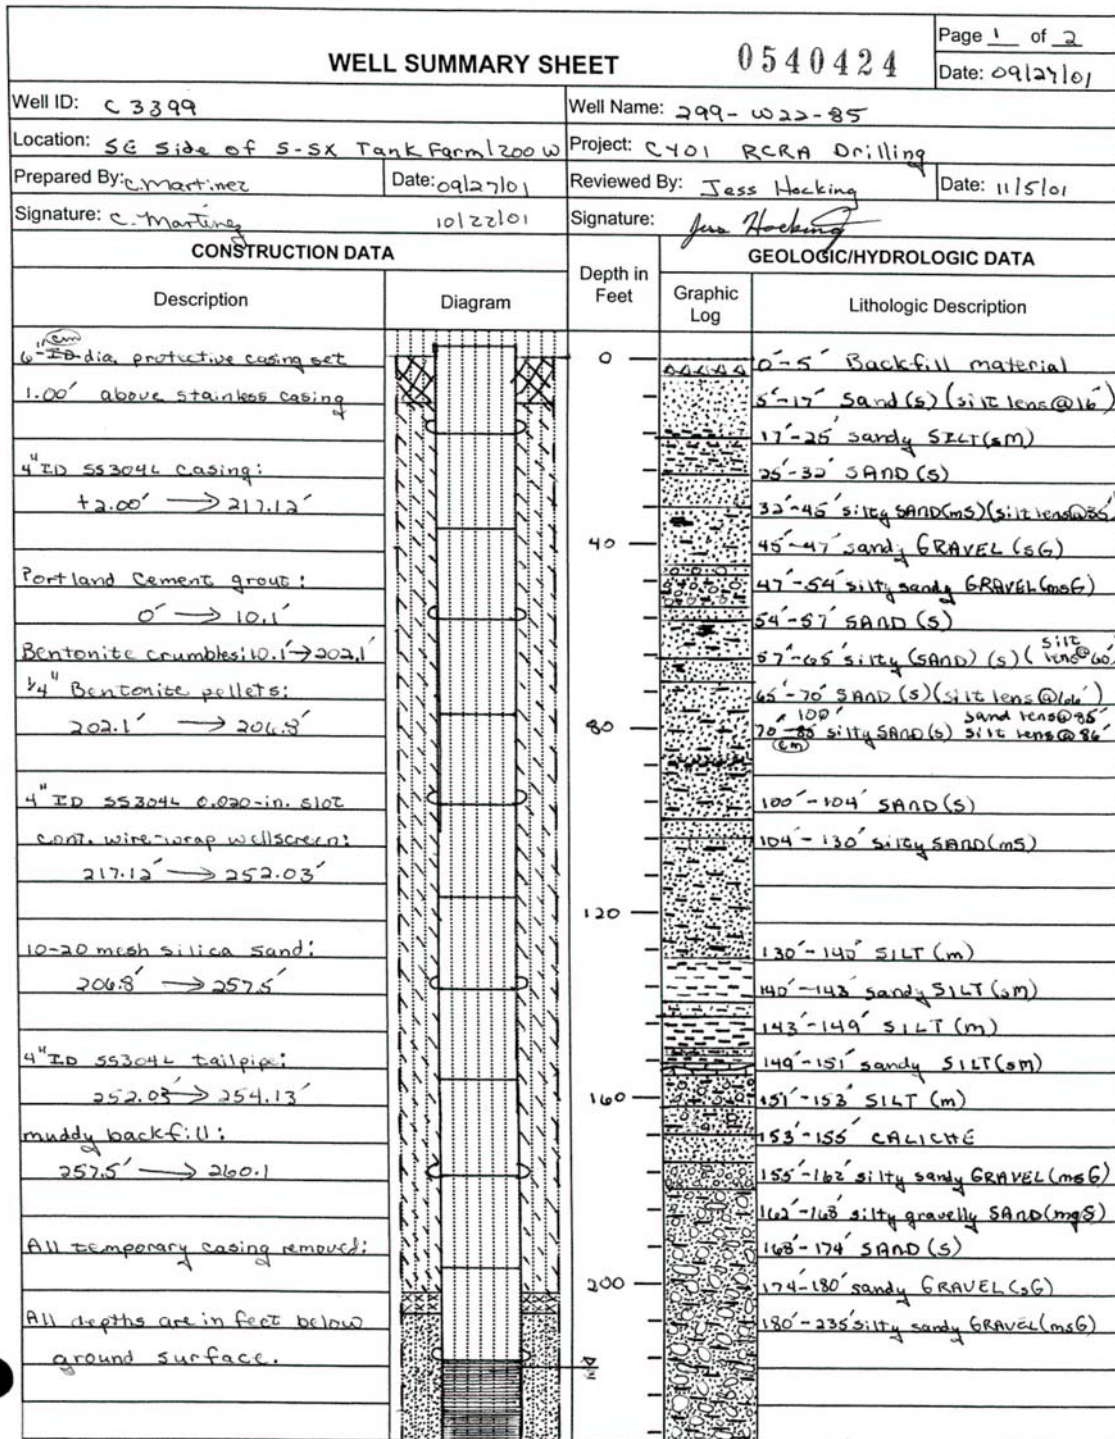 WELL SUMMARY SHEET
0540424
Page 1 of 2
Date: 09/27/01
Well ID: C3399
Well Name: 299-W22-85
Location: SE Side of S-SX Tank Farm/200W
Project: CY01 RCRA Drilling
Prepared By: C. Martinez
Date: 09/27/01
Reviewed By: Jess Hocking
Date: 11/5/01
Signature: C. Martinez 10/22/01
Signature: Jess Hocking
CONSTRUCTION DATA
Depth in Feet
GEOLOGIC/HYDROLOGIC DATA
Description
Diagram
Graphic Log
Lithologic Description
cm
6" ID dia. protective casing set
1.00' above stainless casing
4" ID SS304L casing:
+2.00' → 217.12'
Portland Cement grout:
0' → 10.1'
Bentonite crumbles: 10.1' → 202.1'
1/4" Bentonite pellets:
202.1' → 206.8'
4" ID SS304L 0.020-in. slot
cont. wire-wrap wellscreen:
217.12' → 252.03'
10-20 mesh silica sand:
206.8' → 257.5'
4" ID SS304L tailpipe:
252.03' → 254.13'
muddy backfill:
257.5' → 260.1
All temporary casing removed:
All depths are in feet below
ground surface.
0
40
80
120
160
200
0'-5' Backfill material
5'-17' Sand (s) (silt lens @ 16')
17'-25' sandy SILT (sm)
25'-32' SAND (s)
32'-45' silty SAND (ms) (silt lens @ 35'
45'-47' sandy GRAVEL (sG)
47'-54' silty sandy GRAVEL (msG)
54'-57' SAND (s)
57'-65' silty (SAND) (s) (silt lens @ 60'
65'-70' SAND (s) (silt lens @ 66')
100' sand lens @ 85'
70'-85' silty SAND (s) silt lens @ 86'
cm
100'-104' SAND (s)
104'-130' silty SAND (mS)
130'-140' SILT (m)
140'-143' sandy SILT (sm)
143'-149' SILT (m)
149'-151' sandy SILT (sm)
151'-153' SILT (m)
153'-155' CALICHE
155'-162' silty sandy GRAVEL (msG)
162'-168' silty gravelly SAND (mgS)
168'-174' SAND (s)
174'-180' sandy GRAVEL (sG)
180'-235' silty sandy GRAVEL (msG)